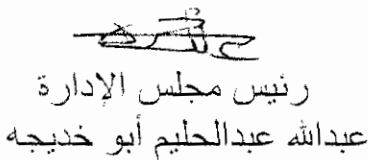 رئيس مجلس الإدارة
عبدالله عبدالحليم أبو خديجه